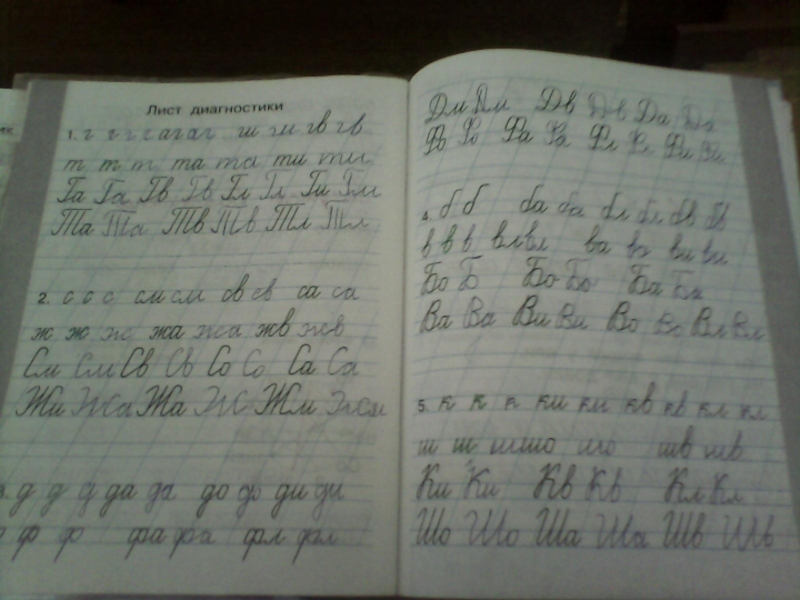 Лист диагностики
1. г г г г аг аг ги ги гв гв
т т т та та ти ти
Га Га Гв Гв Гл Гл Ги Ги
Та Та Тв Тв Тл Тл
2. с с с см см св св са са
ж ж ж жа жа жв жв
См См Св Св Со Со Са Са
Жи Жа Жа Ж Жм
3. д д д да да до до ди ди
ф ф фа фа фл фл
Дм Дм Дв Дв Да Да
Фо Фо Фа Фа Фл Фл Фи Фи
4. б б ба ба бл бл бв бв
в в в вл вл ва ва ви ви
Бо Б Бо Бо Ба Ба
Ва Ва Ви Ви Во Во Вл Вл
5. к к к ки ки кв кв кл кл
ш ш шо шв шв
Ки Ки Кв Кв Кл Кл
Шо Шо Ша Ша Шв Шв